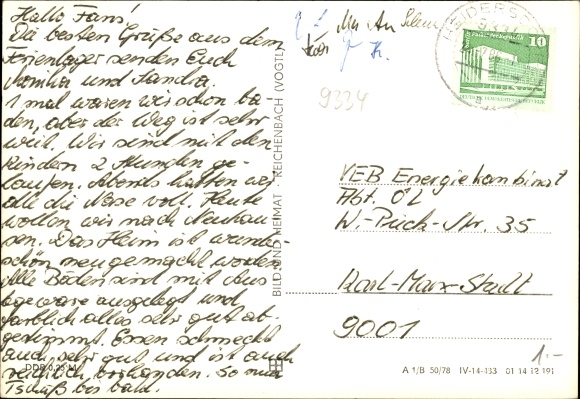 Hallo Fans!
Die besten Grüße aus dem
Ferienlager senden Euch
Monika und Sandra.
1 mal waren wir schon ba-
den, aber der Weg ist sehr
weit. Wir sind mit den
Kindern 2 Stunden ge-
laufen. Abends hatten wir
alle die Nase voll. Heute
wollen wir nach Neuhau-
sen. Das Heim ist wunder-
schön neu gemacht worden.
Alle Böden sind mit Aus-
legeware ausgelegt und
farblich alles sehr gut ab-
gestimmt. Essen schmeckt
auch sehr gut und ist auch
reichlich vorhanden. So nun
Tschüß bis bald.
DDR 0,25 M
BILD UND HEIMAT · REICHENBACH (VOGTL)
9334
10
VEB Energiekombinat
Abt. ÖL
W.-Pieck-Str. 35
Karl-Marx-Stadt
9001
1.-
A 1/B 50/78 IV-14-133 01 14 12 191